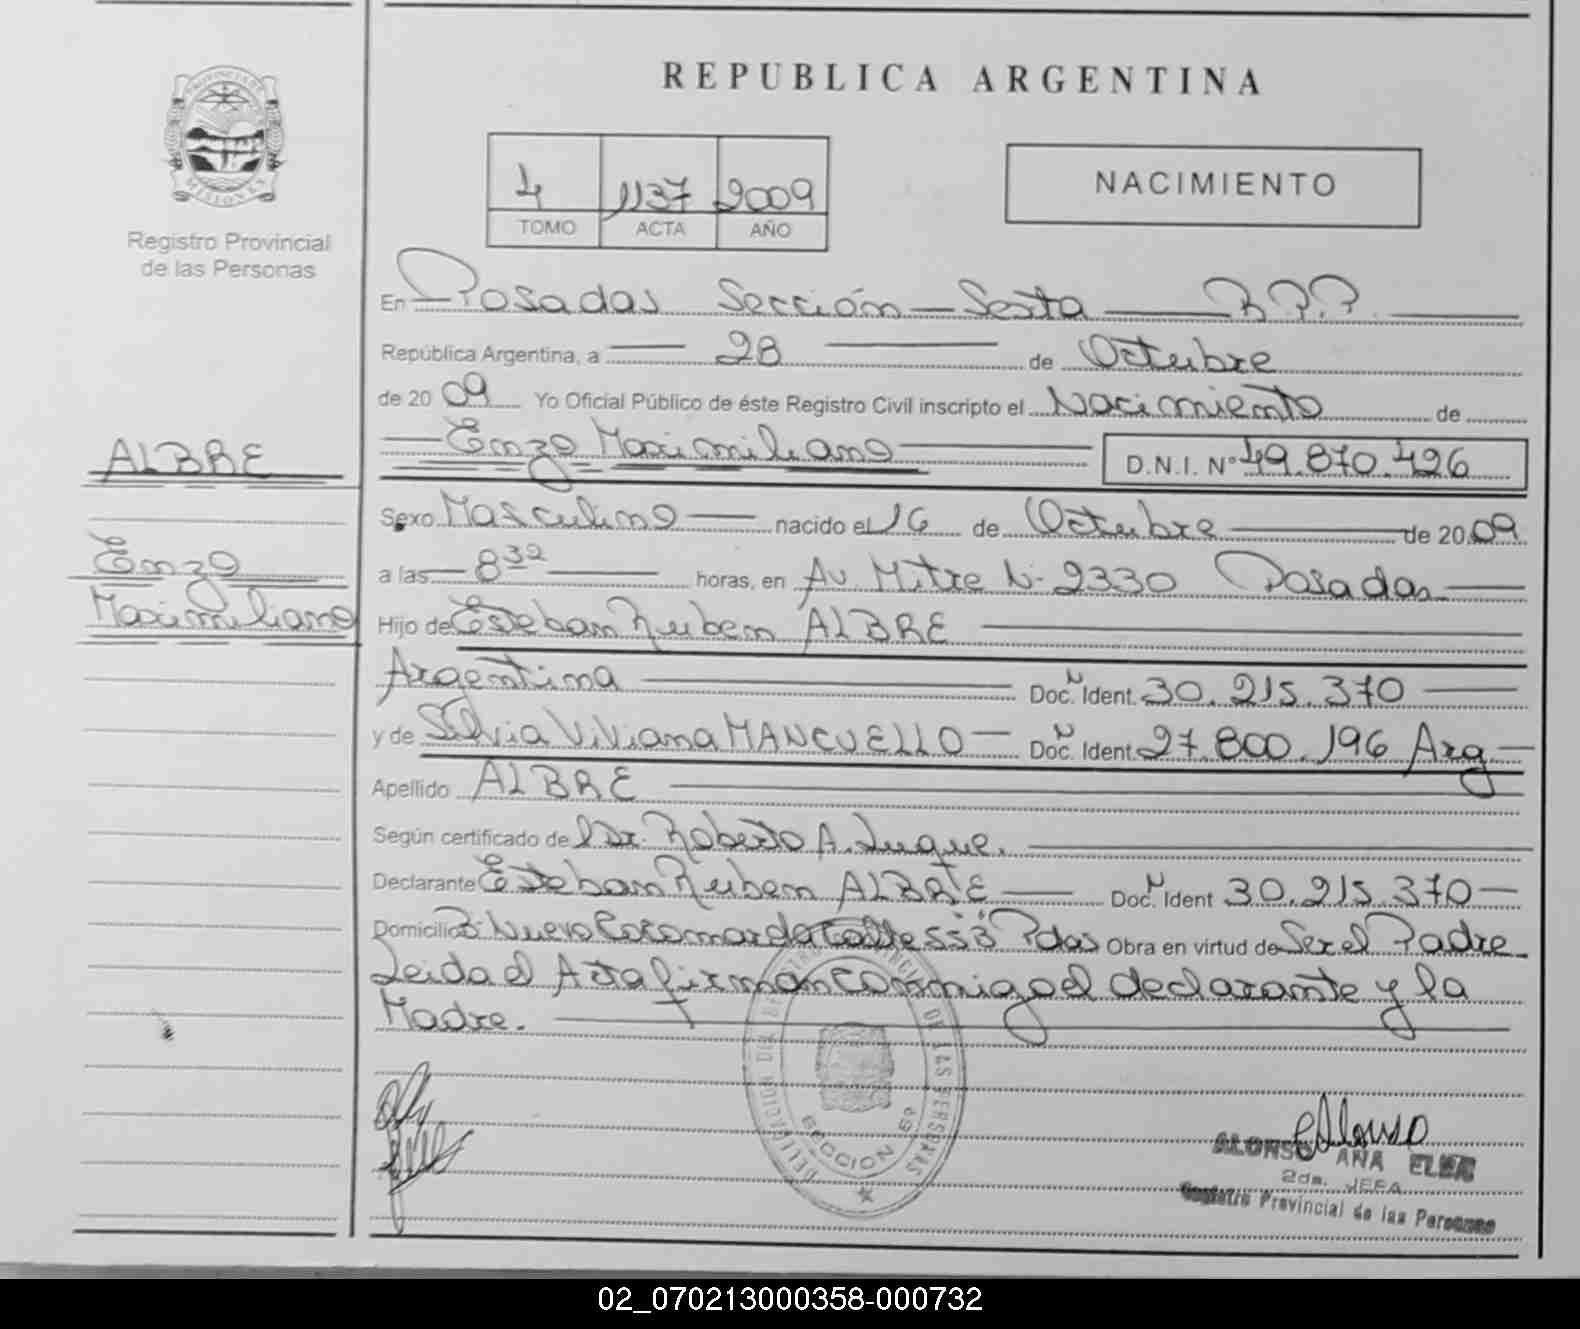 REPUBLICA ARGENTINA
PROVINCIA DE
MISIONES
Registro Provincial
de las Personas
4 1137 2009
TOMO ACTA AÑO
NACIMIENTO
En Posadas Sección Sexta R.P.P.
República Argentina, a 28 de Octubre
de 2009 Yo Oficial Público de éste Registro Civil inscripto el Nacimiento de
Enzo Maximiliano D.N.I. Nº 49.870.426
ALBRE
Enzo
Maximiliano
Sexo Masculino nacido el 16 de Octubre de 2009
a las 8 30 horas, en Av. Mitre Nº 2330 Posadas
Hijo de Esteban Ruben ALBRE
Argentina Doc. Ident. 30.215.370
y de Silvia Viviana MANCUELLO Doc. Ident. 27.800.196 Arg
Apellido ALBRE
Según certificado de Dr. Roberto A. Luque.
Declarante Esteban Ruben ALBRE Doc. Ident 30.215.370
Domicilio Bº Nuevo Cocomarola Calle 553 Pdas Obra en virtud de Ser el Padre
Leida el Acta firman conmigo el declarante y la
Madre.
DELEGACION DEL REGISTRO PROVINCIAL DE LAS PERSONAS
SECCION 6ª
Alonso
ALONSO ANA ELBA
2da. JEFA
Registro Provincial de las Personas
02_070213000358-000732